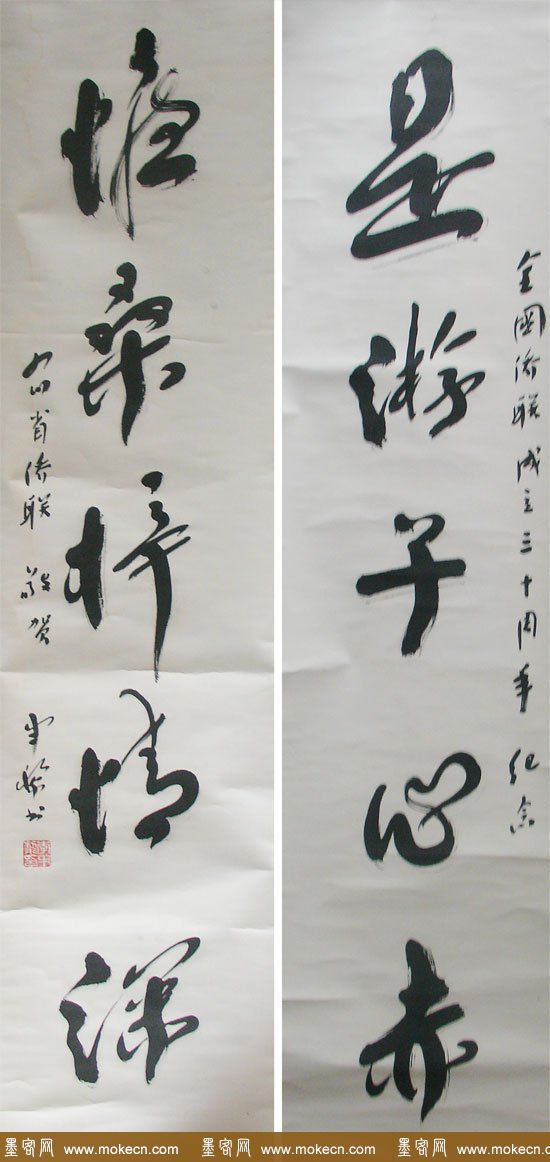 全國侨联成立三十周年 纪念
是游子心赤
惟桑梓情深
省侨联 敬贺
书
墨客网 www.mokecn.com 墨客网 www.mokecn.com 墨客网 www.mokecn.com